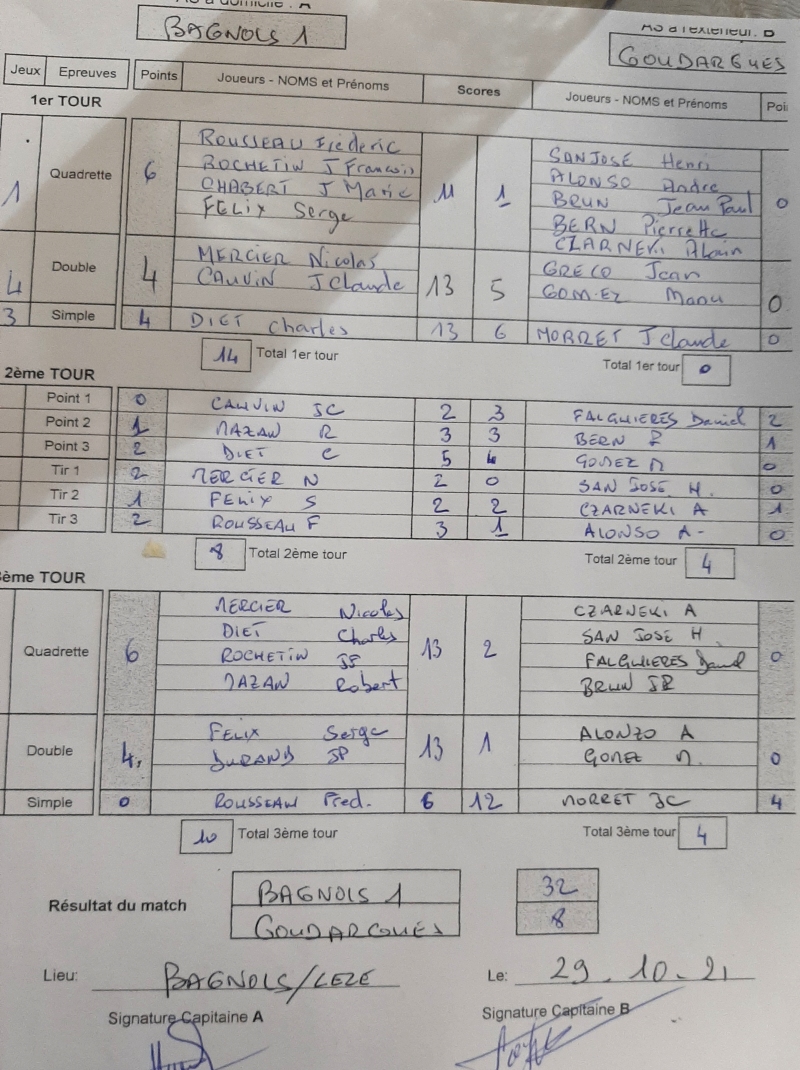 BAGNOLS 1
AS à l'extérieur. B
GOUDARGUES
Jeux Epreuves Points Joueurs - NOMS et Prénoms Scores Joueurs - NOMS et Prénoms Poi
1er TOUR
1 Quadrette 6 ROUSSEAU Frederic 11 1 SANJOSE Henri 0
ROCHETIN J Francois ALONSO Andre
CHABERT J Marie BRUN Jean Paul
FELIX Serge BERN Pierrette
CZARNEKI Alain
4 Double 4 MERCIER Nicolas 13 5 GRECO Jean 0
CAUVIN J Claude GOMEZ Manu
3 Simple 4 DIET Charles 13 6 MORRET J Claude 0
14 Total 1er tour Total 1er tour 0
2ème TOUR
Point 1 0 CAUVIN JC 2 3 FALGUIERES Daniel 2
Point 2 1 MAZAN R 3 3 BERN P 1
Point 3 2 DIET C 5 4 GOMEZ M 0
Tir 1 2 MERCIER N 2 0 SAN JOSE H. 0
Tir 2 1 FELIX S 2 2 CZARNEKI A 1
Tir 3 2 ROUSSEAU F 3 1 ALONSO A- 0
8 Total 2ème tour Total 2ème tour 4
3ème TOUR
Quadrette 6 MERCIER Nicolas 13 2 CZARNEKI A 0
DIET Charles SAN JOSE H
ROCHETIN JF FALGUIERES Daniel
MAZAN Robert BRUN JP
Double 4 FELIX Serge 13 1 ALONZO A 0
DURAND JP GOMEZ M.
Simple 0 ROUSSEAU Fred. 6 12 MORRET JC 4
10 Total 3ème tour Total 3ème tour 4
Résultat du match BAGNOLS 1 32
GOUDARGUES 8
Lieu: BAGNOLS/CEZE Le: 29.10.21
Signature Capitaine A Signature Capitaine B